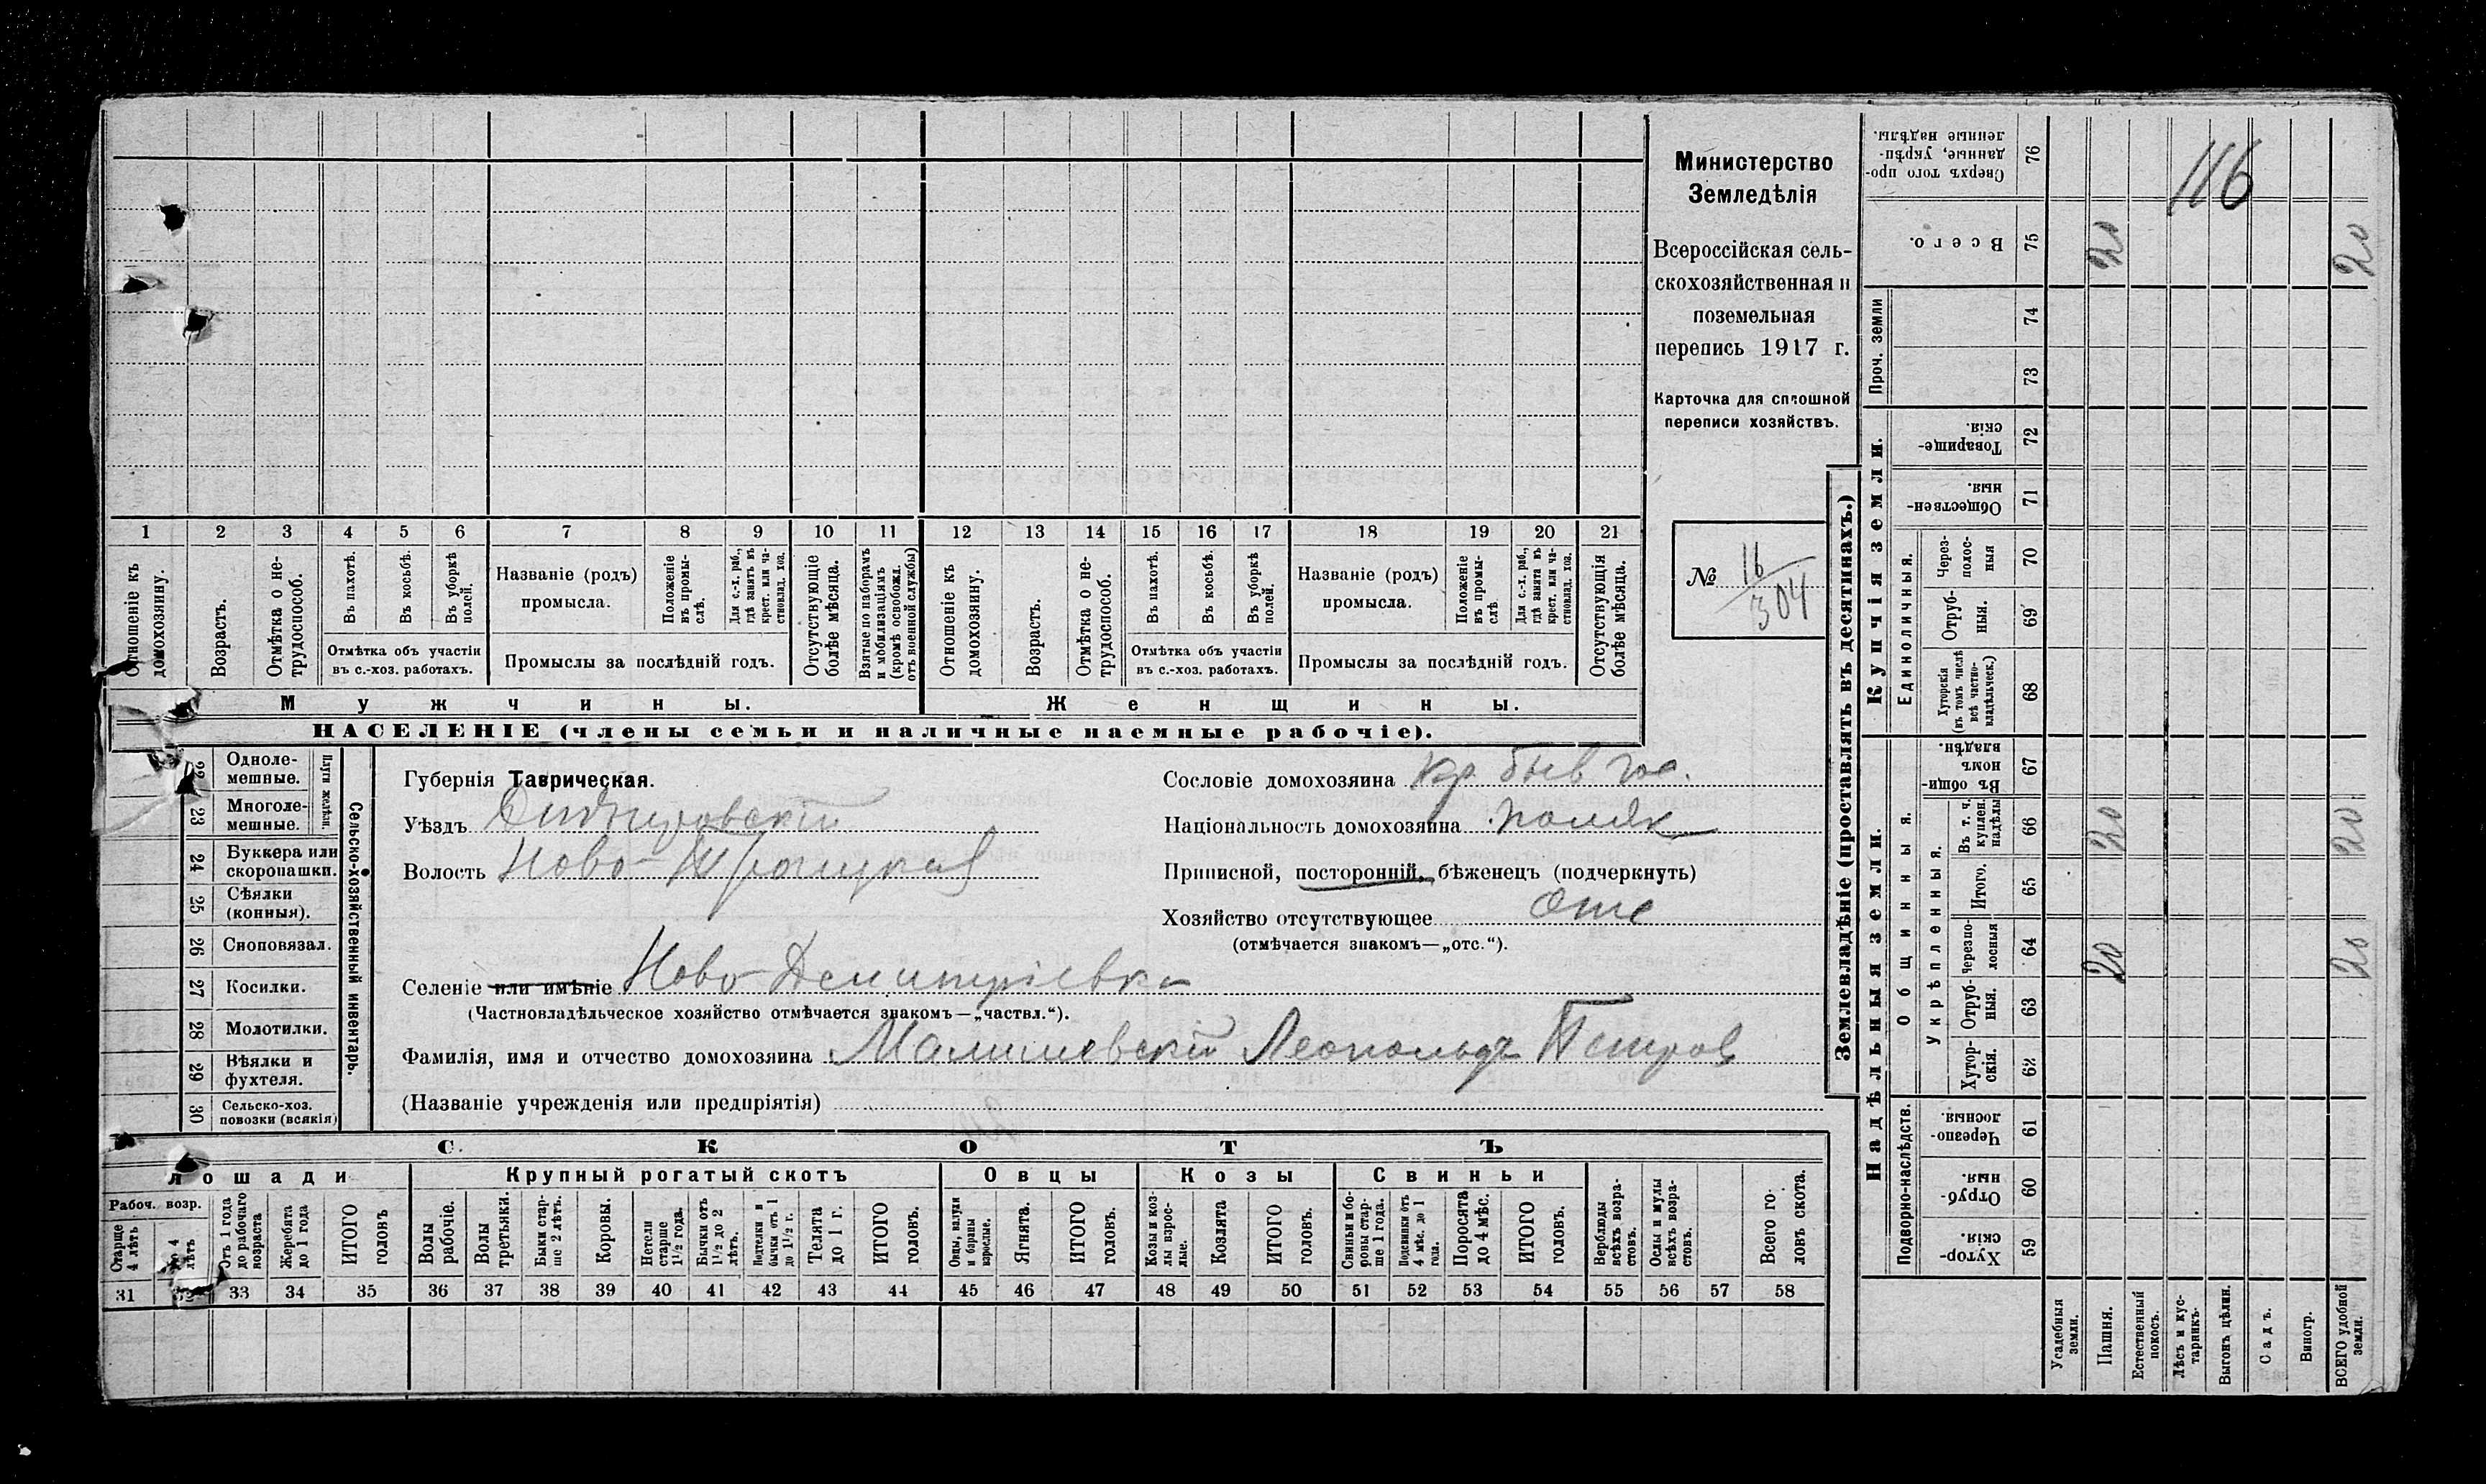 Министерство
Земледѣлія
Всероссійская сель-
скохозяйственная и
поземельная
перепись 1917 г.
Карточка для сплошной
переписи хозяйствъ.
№ 16/304
1 2 3 4 5 6 7 8 9 10 11 12 13 14 15 16 17 18 19 20 21
Отношеніе къ домохозяину.
Возрастъ.
Отмѣтка о не-трудоспособ.
Въ пахотѣ.
Въ косьбѣ.
Въ уборкѣ полей.
Отмѣтка объ участіи въ с.-хоз. работахъ.
Названіе (родъ) промысла.
Положеніе въ промы-слѣ.
Для с.-х. раб., гдѣ занятъ въ крест. или ча-стновлад. хоз.
Промыслы за послѣдній годъ.
Отсутствующіе болѣе мѣсяца.
Взятые по наборамъ и мобилизаціямъ (кромѣ освобожд. отъ военной службы)
Отношеніе къ домохозяину.
Возрастъ.
Отмѣтка о не-трудоспособ.
Въ пахотѣ.
Въ косьбѣ.
Въ уборкѣ полей.
Отмѣтка объ участіи въ с.-хоз. работахъ.
Названіе (родъ) промысла.
Положеніе въ промы-слѣ
Для с.-х. раб., гдѣ занята въ крест. или ча-стновлад. хоз.
Промыслы за послѣдній годъ.
Отсутствующія болѣе мѣсяца.
Мужчины. Женщины.
НАСЕЛЕНІЕ (члены семьи и наличные наемные рабочіе).
Сельско-хозяйственный инвентарь.
Плуги желѣзн.
22 Одноле-мешные.
23 Многоле-мешные.
24 Буккера или скоропашки.
25 Сѣялки (конныя).
26 Сноповязал.
27 Косилки.
28 Молотилки.
29 Вѣялки и фухтеля.
30 Сельско-хоз. повозки (всякія)
Губернія Таврическая.
Уѣздъ Днѣпровскій
Волость Ново-Троицкая
Сословіе домохозяина кр. быв. гос.
Національность домохозяина поляк
Приписной, посторонній, бѣженецъ (подчеркнуть)
Хозяйство отсутствующее отс
(отмѣчается знакомъ—„отс.“).
Селеніе или имѣніе Ново Димитріевка
(Частновладѣльческое хозяйство отмѣчается знакомъ—„частвл.“).
Фамилія, имя и отчество домохозяина Малишевскій Леопольдъ Петров
(Названіе учрежденія или предпріятія)
СКОТЪ
Лошади Крупный рогатый скотъ Овцы Козы Свиньи
Рабоч. возр.
Старше 4 лѣтъ
До 4 лѣтъ
Отъ 1 года до рабочаго возраста
Жеребята до 1 года
ИТОГО головъ
Волы рабочіе.
Волы третьяки.
Быки стар-ше 2 лѣтъ.
Коровы.
Нетели старше 1 1/2 года.
Бычки отъ 1 1/2 до 2 лѣтъ.
Подтелки и бычки отъ 1 до 1 1/2 г.
Телята до 1 г.
ИТОГО головъ.
Овцы, валухи и бараны взрослые.
Ягнята.
ИТОГО головъ.
Козы и коз-лы взрос-лые.
Козлята
ИТОГО головъ.
Свиньи и бо-ровы стар-ше 1 года.
Подсвинки отъ 4 мѣс. до 1 года.
Поросята до 4 мѣс.
ИТОГО головъ.
Верблюды всѣхъ возра-стовъ.
Ослы и мулы всѣхъ возра-стовъ.
Всего го-ловъ скота.
31 32 33 34 35 36 37 38 39 40 41 42 43 44 45 46 47 48 49 50 51 52 53 54 55 56 57 58
Землевладѣніе (проставлять въ десятинахъ.)
Купчія земли.
Надѣльныя земли.
116
Сверхъ того про-данные, укрѣп-ленные надѣлы. 76
Всего. 75 20 20
Проч. земли
74
73
Товарище-скія. 72
Обществен-ныя. 71
Единоличныя.
Через-полос-ныя 70
Отруб-ныя. 69
Хуторскія (въ томъ числѣ всѣ частно-владѣльческ.) 68
Общинныя.
Въ общи-номъ владѣн. 67
Укрѣпленныя.
Въ т. ч. куплен. надѣлы 66 20 20
Итого. 65
Черезпо-лосныя 64 20 20
Отруб-ныя. 63
Хутор-скія. 62
Подворно-наслѣдств.
Черезпо-лосныя 61
Отруб-ныя. 60
Хутор-скія. 59
Усадебныя земли.
Пашня.
Естественный покосъ.
Лѣсъ и кус-тарникъ.
Выгонъ цѣлин.
Садъ.
Виногр.
ВСЕГО удобной земли.